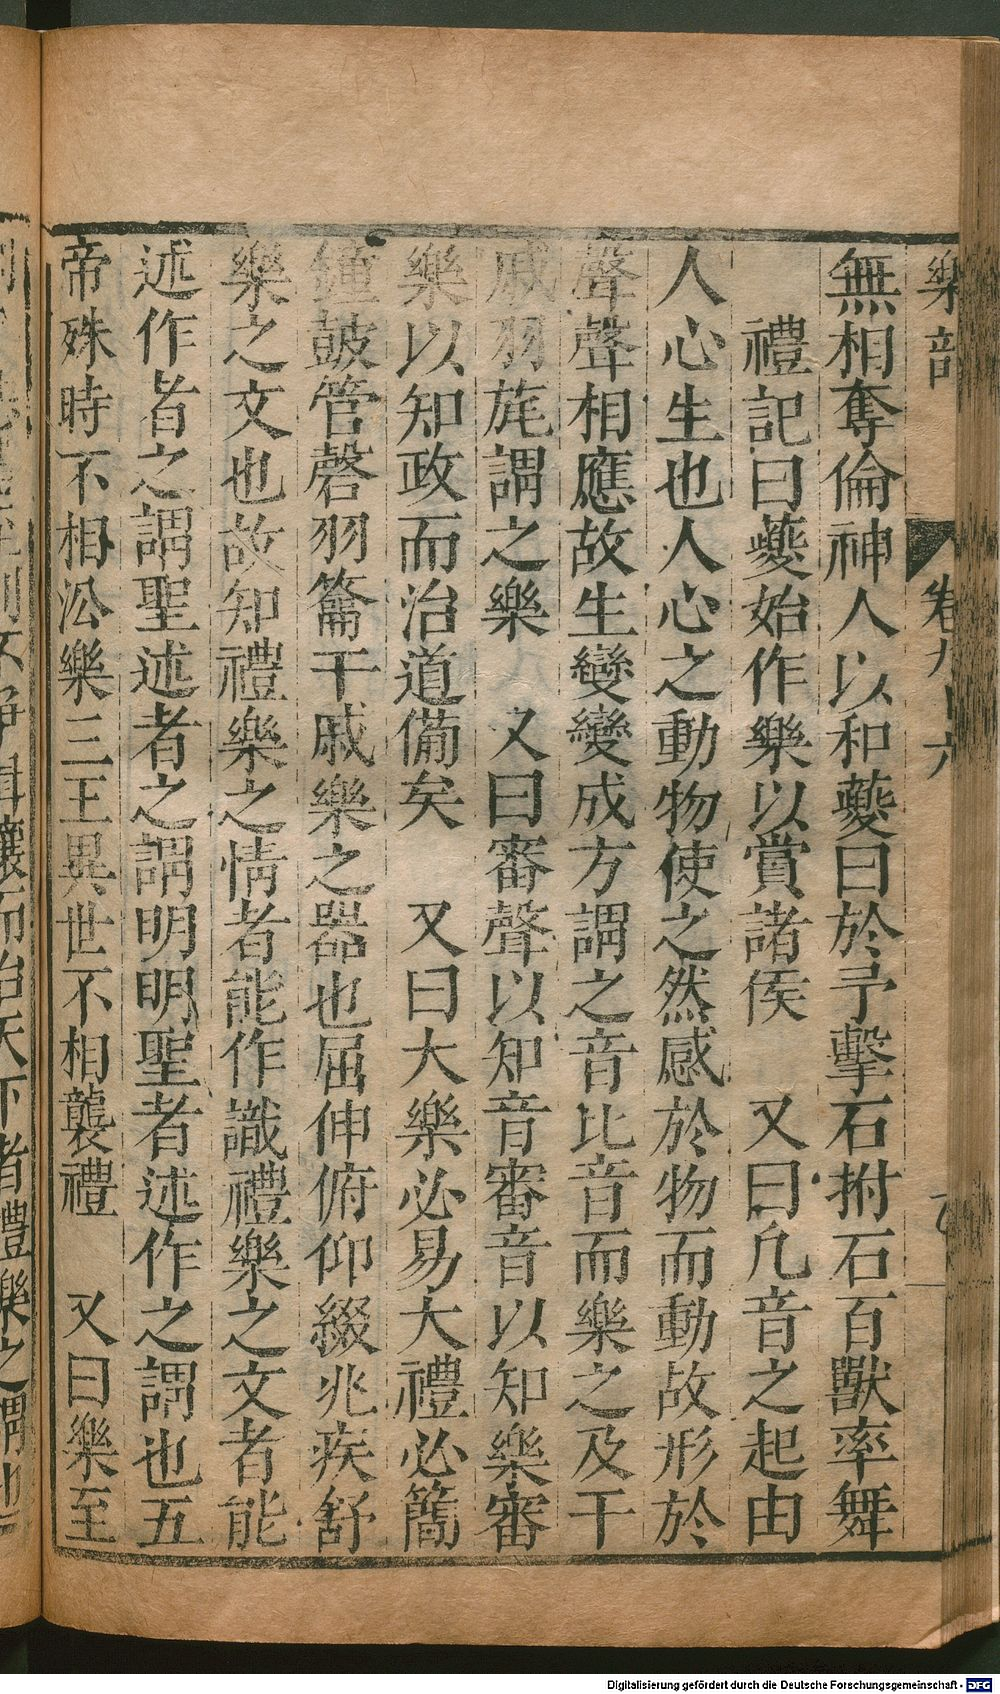 樂部 卷九十六
無相奪倫神人以和夔曰於予擊石拊石百獸率舞
禮記曰夔始作樂以賞諸侯 又曰凡音之起由
人心生也人心之動物使之然感於物而動故形於
聲聲相應故生變變成方謂之音比音而樂之及干
戚羽旄謂之樂 又曰審聲以知音審音以知樂審
樂以知政而治道備矣 又曰大樂必易大禮必簡
鐘鼓管磬羽籥干戚樂之器也屈伸俯仰綴兆疾舒
樂之文也故知禮樂之情者能作識禮樂之文者能
述作者之謂聖述者之謂明明聖者述作之謂也五
帝殊時不相㳂樂三王異世不相襲禮 又曰樂至
而治天下者禮樂之謂也
Digitalisierung gefördert durch die Deutsche Forschungsgemeinschaft - DFG